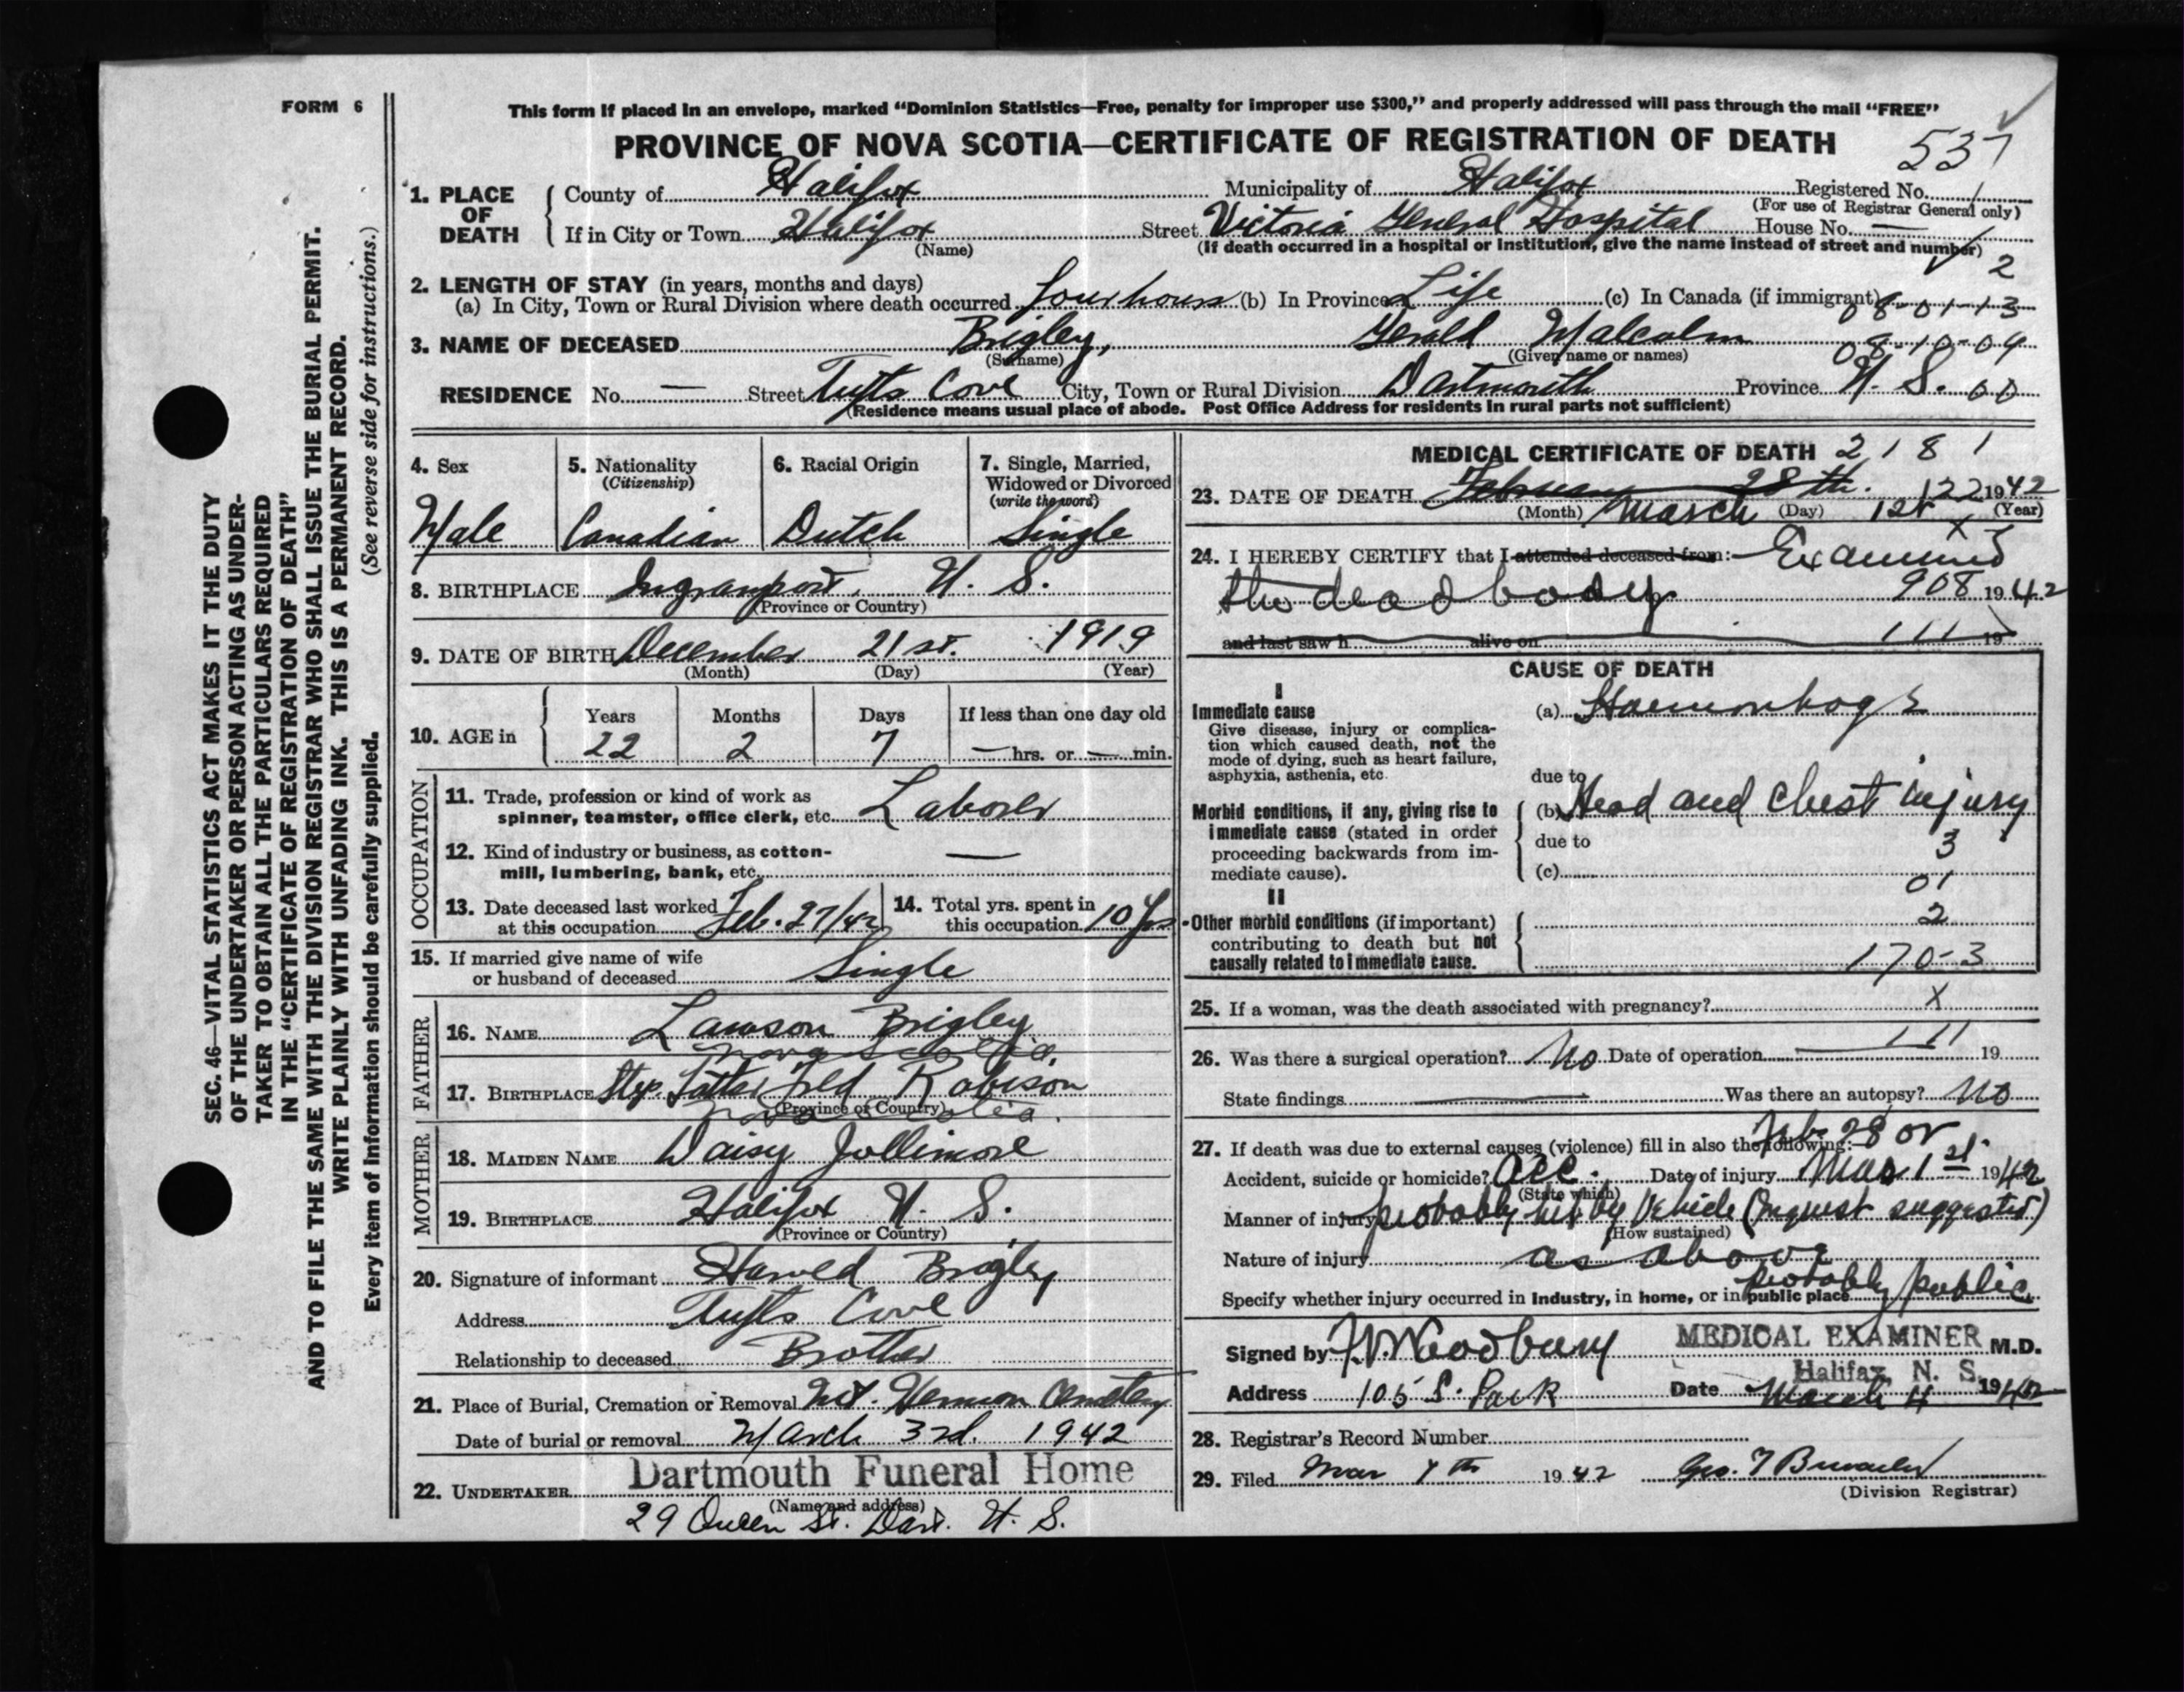 FORM 6
This form if placed in an envelope, marked “Dominion Statistics—Free, penalty for improper use $300,” and properly addressed will pass through the mail “FREE”
PROVINCE OF NOVA SCOTIA—CERTIFICATE OF REGISTRATION OF DEATH
537
1. PLACE OF DEATH County of Halifax Municipality of Halifax Registered No.
(For use of Registrar General only)
If in City or Town Halifax Street Victoria General Hospital House No. —
(Name) (If death occurred in a hospital or institution, give the name instead of street and number)
2
2. LENGTH OF STAY (in years, months and days)
(a) In City, Town or Rural Division where death occurred four hours (b) In Province Life (c) In Canada (if immigrant)
08-01-13
3. NAME OF DECEASED Brigley, Gerald Malcolm
(Surname) (Given name or names)
08-10-09
RESIDENCE No. — Street Tufts Cove City, Town or Rural Division Dartmouth Province N. S. 00
(Residence means usual place of abode. Post Office Address for residents in rural parts not sufficient)
4. Sex
Male
5. Nationality
(Citizenship)
Canadian
6. Racial Origin
Dutch
7. Single, Married,
Widowed or Divorced
(write the word)
Single
8. BIRTHPLACE Ingramport, N. S.
(Province or Country)
9. DATE OF BIRTH December 21st. 1919
(Month) (Day) (Year)
10. AGE in Years Months Days If less than one day old
22 2 7 — hrs. or — min.
OCCUPATION
11. Trade, profession or kind of work as
spinner, teamster, office clerk, etc. Laborer
12. Kind of industry or business, as cotton-
mill, lumbering, bank, etc. —
13. Date deceased last worked
at this occupation Feb. 27/42
14. Total yrs. spent in
this occupation 10 yrs
15. If married give name of wife
or husband of deceased Single
FATHER
16. NAME Lawson Brigley
Nova Scotia.
17. BIRTHPLACE Step. Father Fred Robison
(Province or Country)
Nova Scotia.
MOTHER
18. MAIDEN NAME Daisy Jollimore
19. BIRTHPLACE Halifax N. S.
(Province or Country)
20. Signature of informant Harold Brigley
Address Tufts Cove
Relationship to deceased Brother
21. Place of Burial, Cremation or Removal Mt. Hermon Cemetery
Date of burial or removal March 3rd. 1942
22. UNDERTAKER Dartmouth Funeral Home
(Name and address)
29 Queen St. Dart. N. S.
MEDICAL CERTIFICATE OF DEATH 2 1 8 1
23. DATE OF DEATH February 28th. 122 1942
(Month) March (Day) 1st (Year)
24. I HEREBY CERTIFY that I attended deceased from: Examined
the dead body 908 1942
and last saw h alive on 111 19
CAUSE OF DEATH
I
Immediate cause
Give disease, injury or complica-
tion which caused death, not the
mode of dying, such as heart failure,
asphyxia, asthenia, etc.
(a) Haemorrhage
due to
Morbid conditions, if any, giving rise to
immediate cause (stated in order
proceeding backwards from im-
mediate cause).
(b) Head and chest injury
due to
3
(c)
01
II
Other morbid conditions (if important)
contributing to death but not
causally related to immediate cause.
2
170-3
25. If a woman, was the death associated with pregnancy? X
26. Was there a surgical operation? No Date of operation 111 19
State findings — Was there an autopsy? No
27. If death was due to external causes (violence) fill in also the following:—
Feb 28 or
Accident, suicide or homicide? Acc. Date of injury Mar 1st. 1942
(State which)
Manner of injury probably hit by Vehicle (Inquest suggested)
(How sustained)
Nature of injury as above
Specify whether injury occurred in industry, in home, or in public place probably public
Signed by Woodbury MEDICAL EXAMINER M.D.
Halifax, N. S.
Address 105 S. Park Date March 4 1942
28. Registrar's Record Number
29. Filed Mar 1942 Geo. T
(Division Registrar)
SEC. 46—VITAL STATISTICS ACT MAKES IT THE DUTY
OF THE UNDERTAKER OR PERSON ACTING AS UNDER-
TAKER TO OBTAIN ALL THE PARTICULARS REQUIRED
IN THE “CERTIFICATE OF REGISTRATION OF DEATH”
AND TO FILE THE SAME WITH THE DIVISION REGISTRAR WHO SHALL ISSUE THE BURIAL PERMIT.
WRITE PLAINLY WITH UNFADING INK. THIS IS A PERMANENT RECORD.
Every item of information should be carefully supplied. (See reverse side for instructions.)